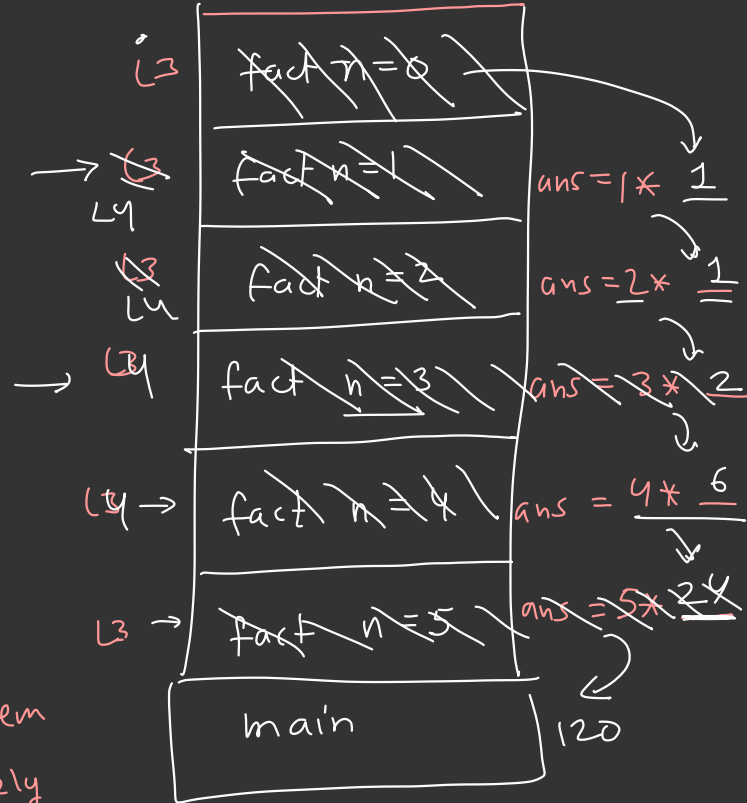 L3 fact n=0
L3 fact n=1 ans = 1* 1
L4
L3 fact n=2 ans = 2* 1
L4
L4 fact n=3 ans = 3* 2
L4 fact n=4 ans = 4* 6
L3 fact n=5 ans = 5* 24
em main 120
ely